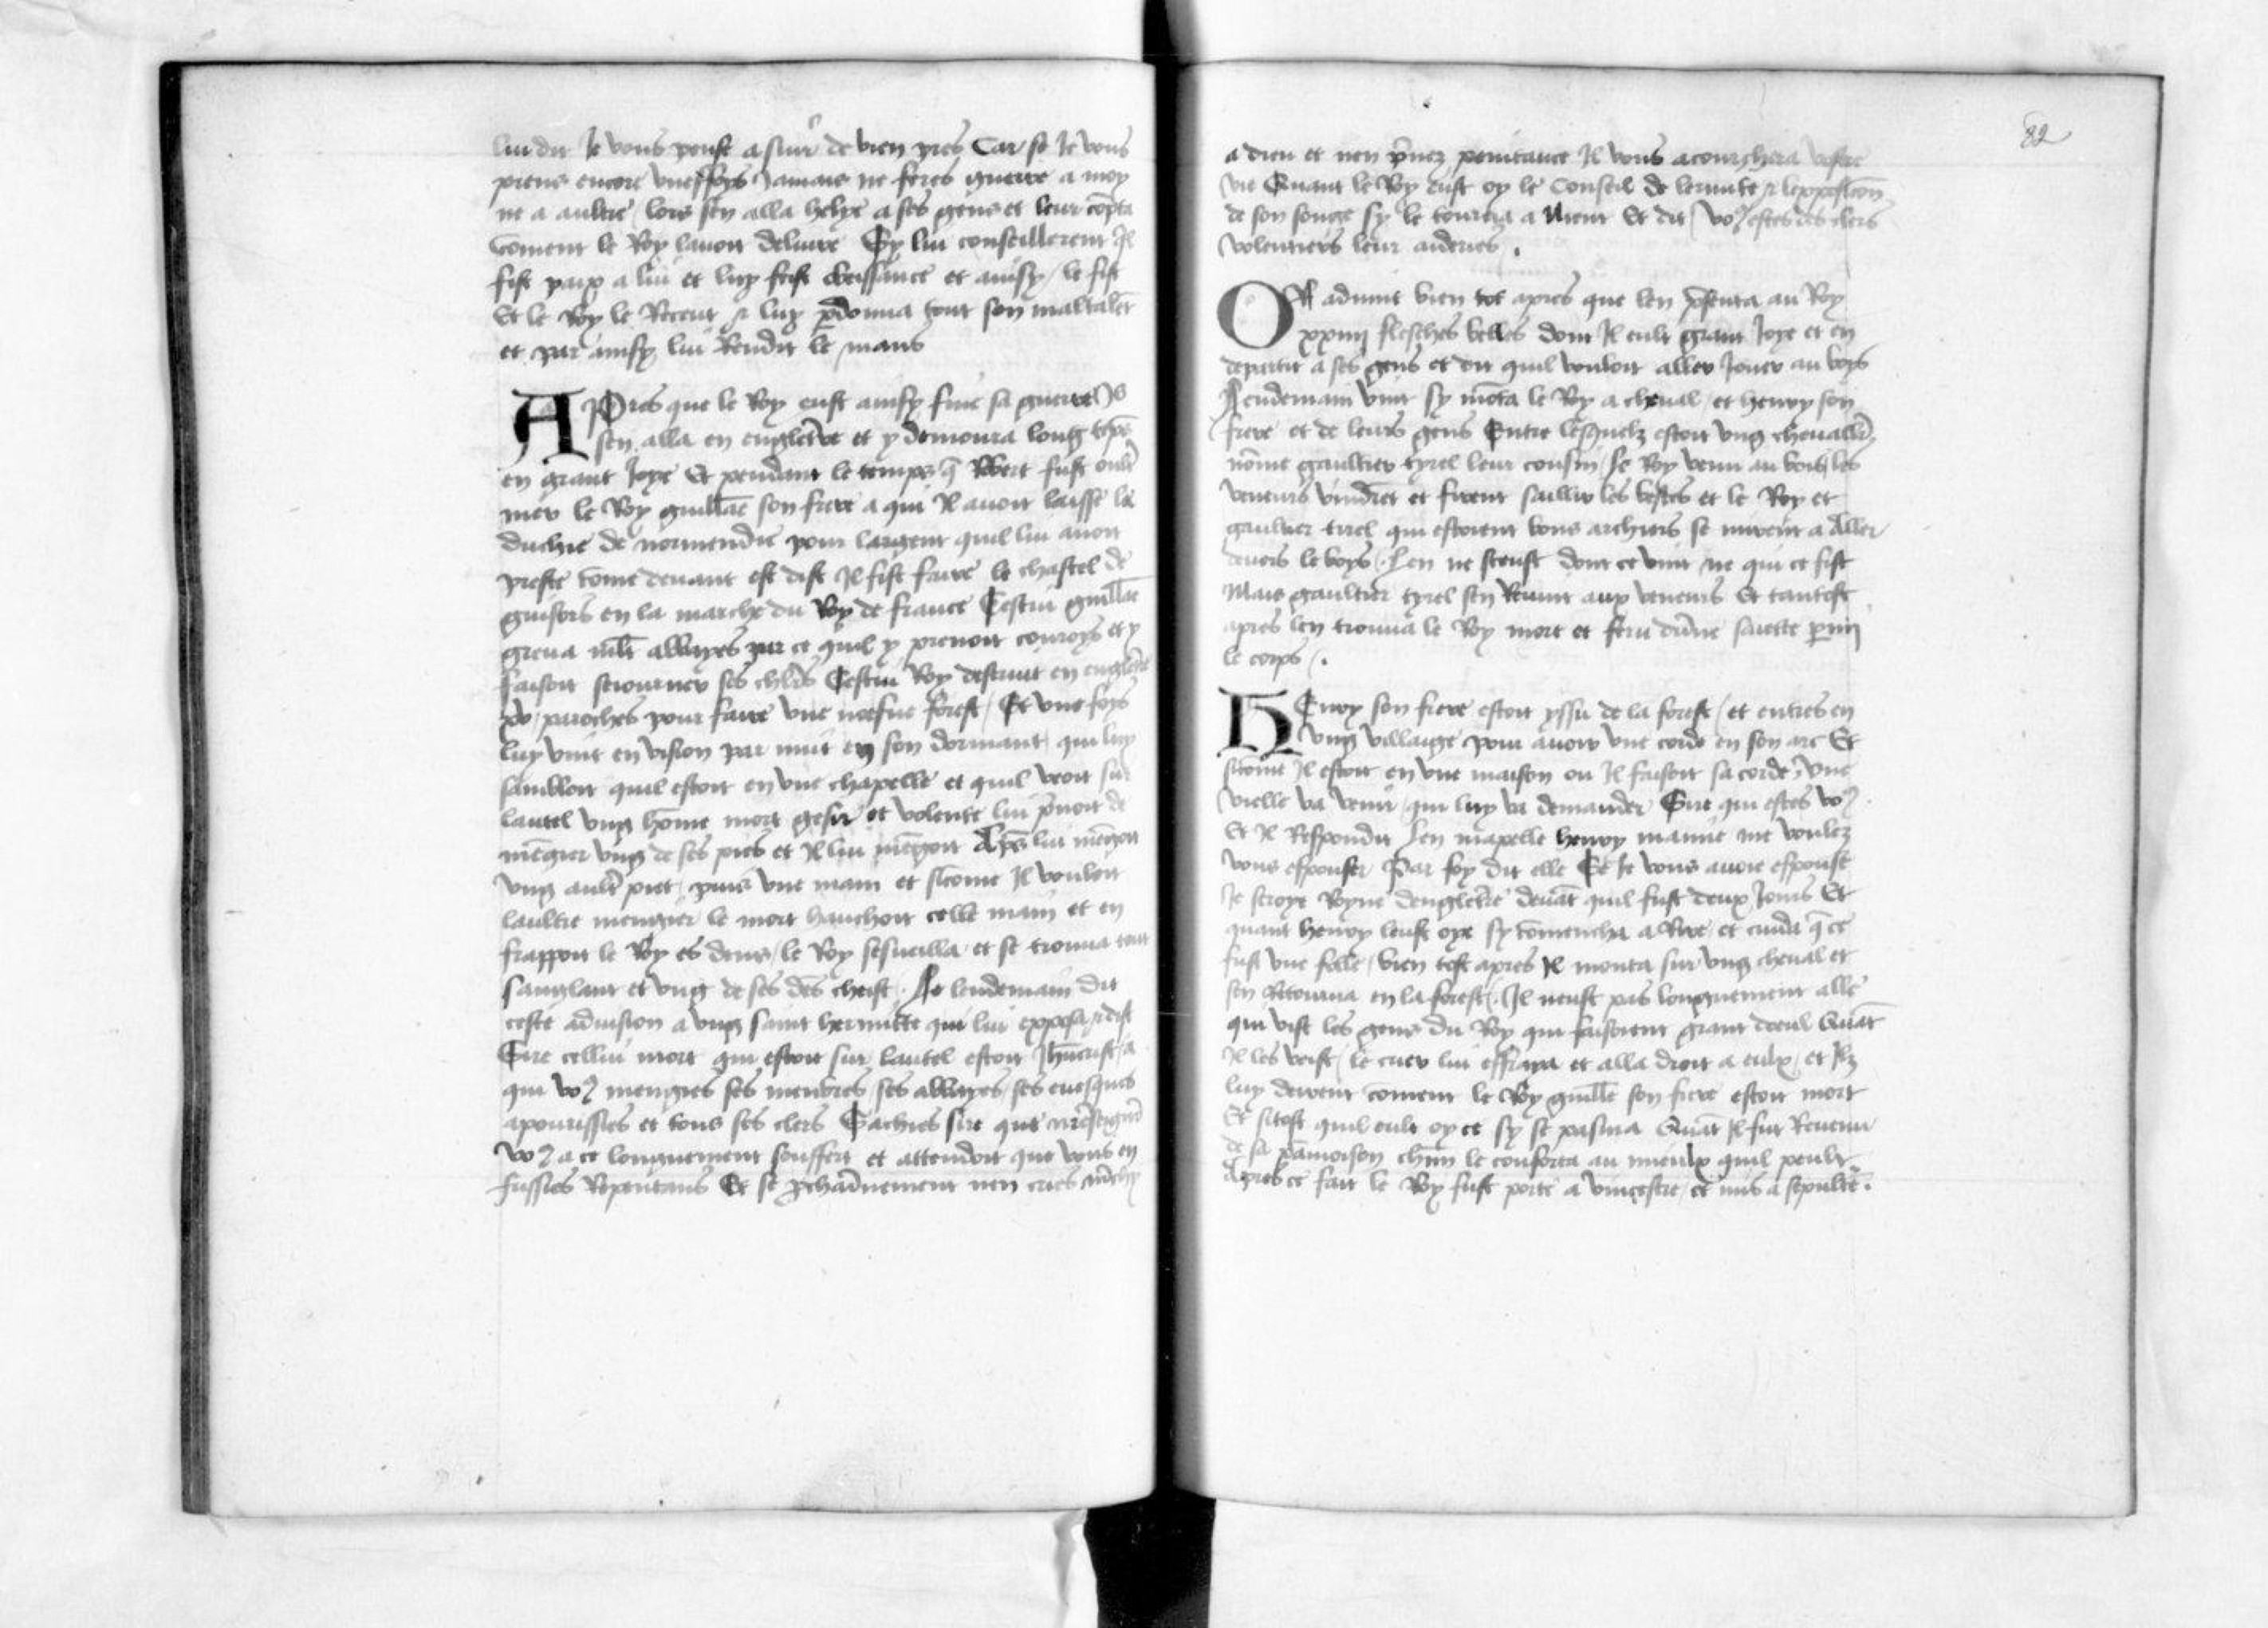 lui dit Je vous pense a suiur de bien pres Car se Je vous
prens encore vneffoys Jamais ne feres guerre a moy
ne a aultre lors sen alla helye a ses gens et leur cōpta
cōment le Roy lauoit deliure Sy lui conseillerent Jl
fist paix a lui et luy feist obeissance et ainsy le fist
Et le Roy le Receut et luy p̄donna tout son maltalēt
et par ainsy lui Rendit le mans
APres que le Roy eust ainsy fine sa guerre Jl
sen alla en engletr̄e et y demoura long tēps
en grant Joye Et pendant le temps q̄ Robert fust oult̄
mer le Roy guillāe son frere a qui Jl auoit laisse la
duchie de normendie pour largent quil lui auoit
preste cōme deuant est dist Jl fist faire le chastel de
guisors en la marche du Roy de france Cestui guillāe
greua mlt̄ abbayes par ce quil y prenoit conroys et y
faisoit seiourner ses chlr̄s Cestui Roy destruit en engletr̄e
xv paroches pour faire vne neefue forest Et vne foys
luy vint en vision par nuit en son dormant qui luy
sambloit quil estoit en vne chapelle et quil veoit sur
lautel vng hōme mort gesir et volente lui p̄noit de
mēgier vng de ses pies et Jl lui mēgoit Ap̄s lui mēgoit
vng ault̄ piet puis vne main et sicōme Jl vouloit
laultre mengier le mort hauchoit celle main et en
frappoit le Roy es dens le Roy sesueilla et se trouua tout
sanglant et vng de ses dēs cheist Le lendemain dit
ceste aduision a vng saint hermitte qui lui exposa et dist
Sire cellui mort qui estoit sur lautel estoit Jhūcrist a
qui vo9 mengies ses menbres ses abbayes ses euesques
apourissies et tous ses clers Sachies sire que nr̄e seigneur
vo9 a ce longuement souffert et attendoit que vous en
fussies Repentans Et se p̄chainement nen cries m̄chy
82
a dieu et nen p̄nez penitance Jl vous acourchera vostre
vie Quant le Roy eust oy le Conseil de lermite et lexpositiōn
de son songe sy le tourna a Nient Et dit vo9 estes des clers
volentiers leur aideries .
OR aduint bien tot apres que len p̄senta au Roy
xxiiij flesches belles dont Jl eult grant Joye et en
departit a ses gens et dit quil vouloit aller Jouer au boys
Lendemain vint sy mōta le Roy a cheual et henry son
frere et de leurs gens Entre lesquelz estoit vng cheuallier
nōme gaultier tyrel leur cousin le Roy venu au bois les
veneurs vindrēt et firent saillir les bestes et le Roy et
gaultier tirel qui estoient bons archiers se mirent a Aller
deuers le boys Len ne sceust dont ce vint ne qui ce fist
Mais gaultier tyrel sen Reuint aux veneurs Et tantost
apres len trouua le Roy mort et feru dune saiette p̄my
le corps .
HEnry son frere estoit yssu de la forest et entres en
vng villaige pour auoir vne corde en son arc Et
sicōme Jl estoit en vne maison ou Jl faisoit sa corde vne
vielle va venir qui luy va demander Sire qui estes vo9
Et Jl Respondit Len mapelle henry mamie me voulez
vous espouser Par foy dit elle Se Je vous auoie espouse
Je seroye Royne dengletr̄e deuāt quil fust deux Jours Et
quant henry leust oye sy cōmencha a Rire et cuida q̄ ce
fust vne folle bien tost apres Jl monta sur vng cheual et
sen Retourna en la forest Jl neust pas longuement alle
qui vist les gens du Roy qui faisoient grant doeul Quāt
Jl les veist le cuer lui effraya et alla droit a eulx et Jlz
luy dirent cōment le Roy guille son frere estoit mort
Et sitost quil eult oy ce sy se pasma Quāt Jl fut Reuenu
de sa pāmoison chūn le conforta au mieulx quil peult
Apres ce fait le Roy fust porte a vincestre et mis a sepultr̄e .